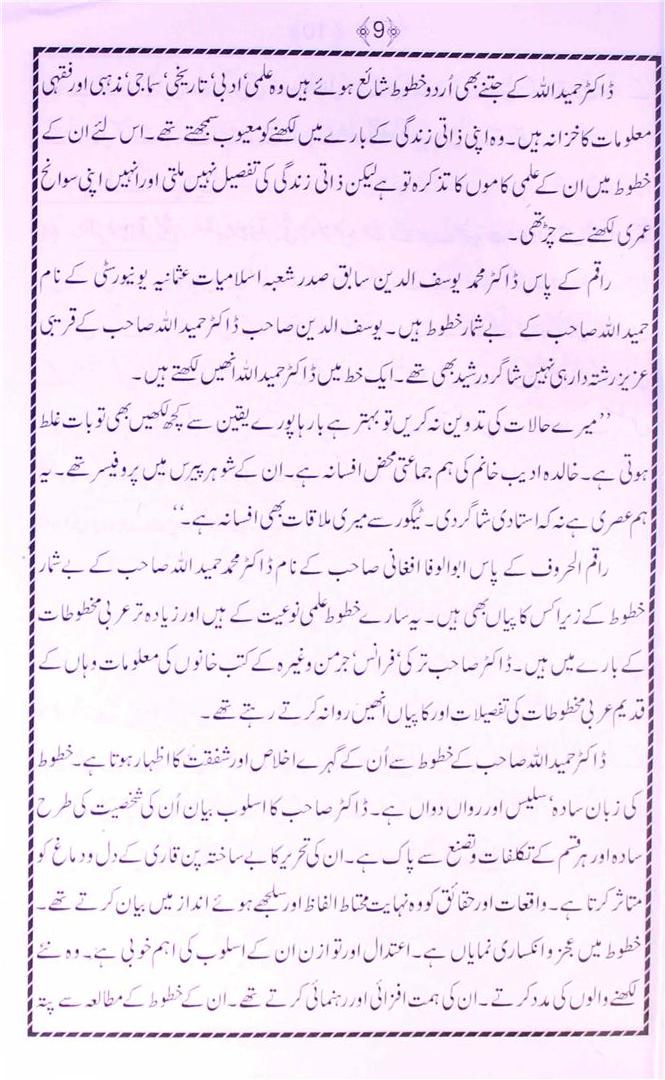 9
ڈاکٹر حمید اللہ کے جتنے بھی اُردو خطوط شائع ہوئے ہیں وہ علمی‘ ادبی‘ تاریخی‘ سماجی‘ مذہبی اور فقہی
معلومات کا خزانہ ہیں۔ وہ اپنی ذاتی زندگی کے بارے میں لکھنے کو معیوب سمجھتے تھے۔ اس لئے ان کے
خطوط میں ان کے علمی کاموں کا تذکرہ تو ہے لیکن ذاتی زندگی کی تفصیل نہیں ملتی اور انہیں اپنی سوانح
عمری لکھنے سے چڑ تھی۔
راقم کے پاس ڈاکٹر محمد یوسف الدین سابق صدر شعبہ اسلامیات عثمانیہ یونیورسٹی کے نام
حمید اللہ صاحب کے بے شمار خطوط ہیں۔ یوسف الدین صاحب ڈاکٹر حمید اللہ صاحب کے قریبی
عزیز رشتہ دار ہی نہیں شاگرد رشید بھی تھے۔ ایک خط میں ڈاکٹر حمید اللہ انھیں لکھتے ہیں۔
’’میرے حالات کی تدوین نہ کریں تو بہتر ہے بارہا پورے یقین سے کچھ لکھیں بھی تو بات غلط
ہوتی ہے۔ خالدہ ادیب خانم کی ہم جماعتی محض افسانہ ہے۔ ان کے شوہر پیرس میں پروفیسر تھے۔ یہ
ہم عصری ہے نہ کہ استادی شاگردی۔ ٹیگور سے میری ملاقات بھی افسانہ ہے۔‘‘
راقم الحروف کے پاس ابوالوفا افغانی صاحب کے نام ڈاکٹر محمد حمید اللہ صاحب کے بے شمار
خطوط کے زیراکس کاپیاں بھی ہیں۔ یہ سارے خطوط علمی نوعیت کے ہیں اور زیادہ تر عربی مخطوطات
کے بارے میں ہیں۔ ڈاکٹر صاحب ترکی‘ فرانس‘ جرمن وغیرہ کے کتب خانوں کی معلومات وہاں کے
قدیم عربی مخطوطات کی تفصیلات اور کاپیاں انھیں روانہ کرتے رہتے تھے۔
ڈاکٹر حمید اللہ صاحب کے خطوط سے اُن کے گہرے اخلاص اور شفقت کا اظہار ہوتا ہے۔ خطوط
کی زبان سادہ‘ سلیس اور رواں دواں ہے۔ ڈاکٹر صاحب کا اسلوب بیان اُن کی شخصیت کی طرح
سادہ اور ہر قسم کے تکلفات و تصنع سے پاک ہے۔ ان کی تحریر کا بے ساختہ پن قاری کے دل و دماغ کو
متاثر کرتا ہے۔ واقعات اور حقائق کو وہ نہایت محتاط الفاظ اور سلجھے ہوئے انداز میں بیان کرتے تھے۔
خطوط میں عجز و انکساری نمایاں ہے۔ اعتدال اور توازن ان کے اسلوب کی اہم خوبی ہے۔ وہ نئے
لکھنے والوں کی مدد کرتے۔ ان کی ہمت افزائی اور رہنمائی کرتے تھے۔ ان کے خطوط کے مطالعہ سے پتہ